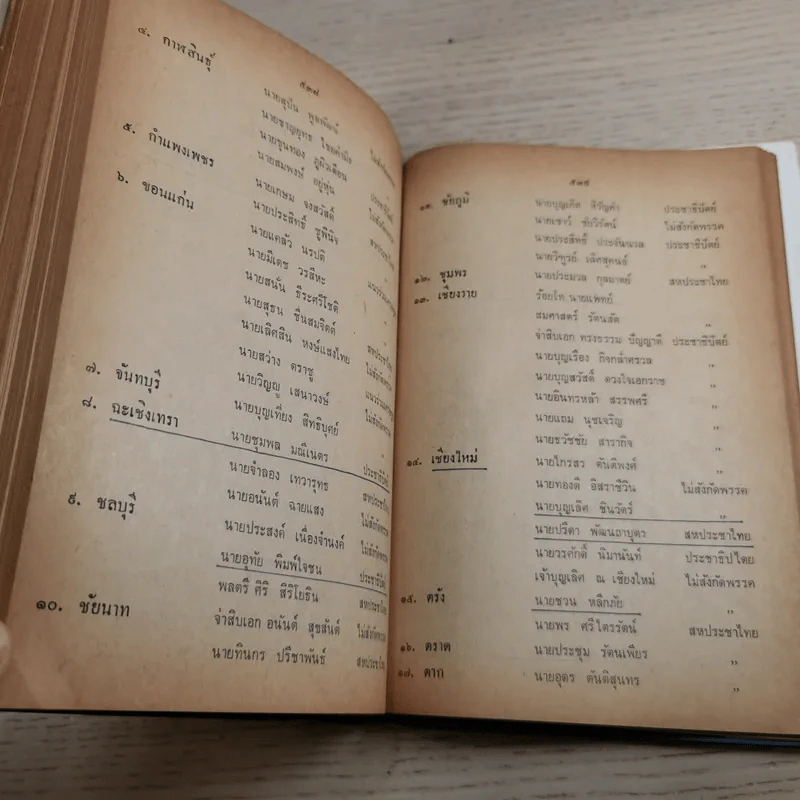 ๕๓๘
๔. กาฬสินธุ์
นายสุบิน
นายชาญยุทธ ไชยคำมิ่ง ไม่สังกัดพรรค
นายขุนทอง ภูผิวเดือน
๕. กำแพงเพชร นายสมพงษ์ อยู่หุ่น
๖. ขอนแก่น นายเกษม จงสวัสดิ์ ไม่สังกัดพรรค
นายประสิทธิ์ ชูพินิจ สหประชาไทย
นายแคล้ว นรปติ
นายมีเดช วรสีหะ
นายสนั่น ธีระศรีโชติ
นายสุธน ชื่นสมจิตต์ ไม่สังกัดพรรค
นายเลิศสิน หงษ์แสงไทย สหประชาไทย
นายสว่าง ตราชู
นายวิญญู เสนาวงษ์
๗. จันทบุรี นายบุญเที่ยง สิทธิบุศย์ ไม่สังกัดพรรค
๘. ฉะเชิงเทรา นายชุมพล มณีเนตร ประชาธิปัตย์
นายจำลอง เทวารุทธ สหประชาไทย
นายอนันต์ ฉายแสง ไม่สังกัดพรรค
๙. ชลบุรี นายประสงค์ เนื่องจำนงค์ ไม่สังกัดพรรค
นายอุทัย พิมพ์ใจชน ประชาธิปัตย์
พลตรี ศิริ สิริโยธิน สหประชาไทย
๑๐. ชัยนาท จ่าสิบเอก อนันต์ สุขสันต์ ไม่สังกัดพรรค
นายทินกร ปรีชาพันธ์ สหประชาไทย
๕๓๙
๑๑. ชัยภูมิ นายบุญเกิด หิรัญคำ ประชาธิปัตย์
นายเชาว์ ชัยวิรัตน์ ไม่สังกัดพรรค
นายประสิทธิ์ ประชันนวล ประชาธิปัตย์
นายวิฑูรย์ เลิศสุคนธ์ ,,
๑๒. ชุมพร นายประมวล กุลมาตย์ สหประชาไทย
๑๓. เชียงราย ร้อยโท นายแพทย์
สมศาสตร์ รัตนสัค ,,
จ่าสิบเอก ทรงธรรม ปัญญาดี ประชาธิปัตย์
นายบุญเรือง กิจกล่ำศรวล ,,
นายบุญสวัสดิ์ ดวงใจเอกราช ,,
นายอินทรหล้า สรรพศรี ,,
นายแถม นุชเจริญ ,,
นายธวัชชัย สารากิจ ,,
๑๔. เชียงใหม่ นายไกรสร ตันติพงศ์ ,,
นายทองดี อิสราชีวิน ไม่สังกัดพรรค
นายบุญเลิศ ชินวัตร์ ,,
นายปรีดา พัฒนถาบุตร สหประชาไทย
นายวรศักดิ์ นิมานันท์ ประชาธิปไตย
เจ้าบุญเลิศ ณ เชียงใหม่ ไม่สังกัดพรรค
๑๕. ตรัง นายชวน หลีกภัย ,,
นายพร ศรีไตรรัตน์ สหประชาไทย
๑๖. ตราด นายประชุม รัตนเพียร ,,
๑๗. ตาก นายอุดร ตันติสุนทร ,,